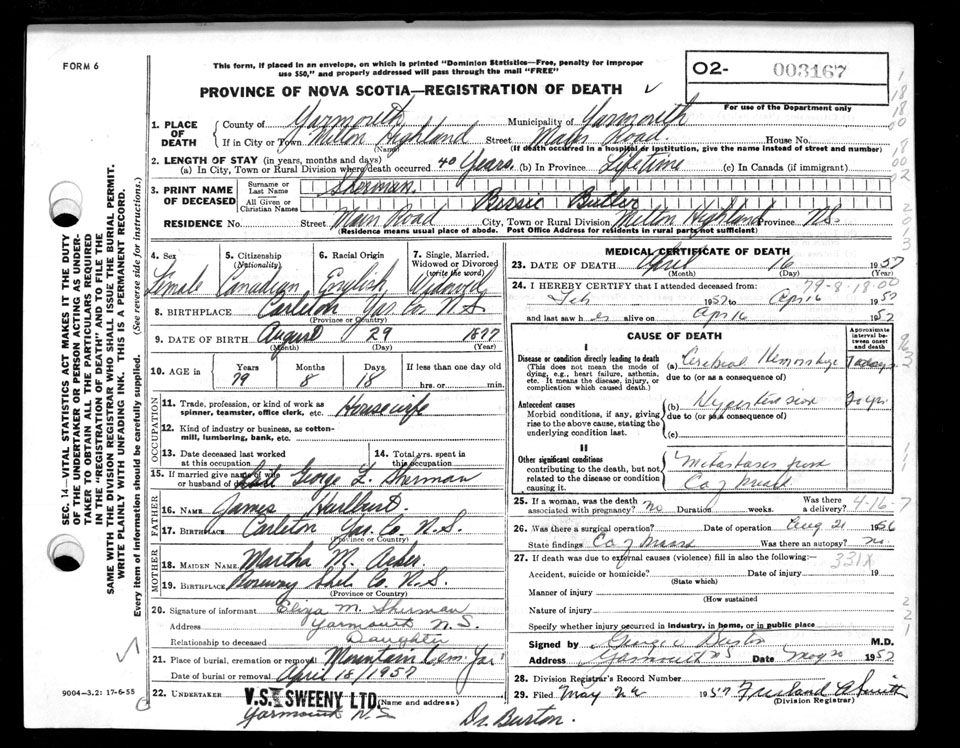 FORM 6
This form, if placed in an envelope, on which is printed "Dominion Statistics—Free, penalty for improper
use $50," and properly addressed will pass through the mail "FREE"
O2- 003167
PROVINCE OF NOVA SCOTIA—REGISTRATION OF DEATH
For use of the Department only
1. PLACE OF DEATH
County of Yarmouth Municipality of Yarmouth
If in City or Town Milton Highland Street Main Road House No.
(Name) (If death occurred in a hospital or institution, give name instead of street and number)
2. LENGTH OF STAY (in years, months and days)
(a) In City, Town or Rural Division where death occurred 40 Years. (b) In Province Lifetime (c) In Canada (if immigrant)
3. PRINT NAME OF DECEASED
Surname or Last Name Sherman
All Given or Christian Names Bessie Butler
RESIDENCE No. Street Main Road City, Town or Rural Division Milton Highland Province N.S.
(Residence means usual place of abode. Post Office Address for residents in rural parts not sufficient)
4. Sex Female
5. Citizenship (Nationality) Canadian
6. Racial Origin English
7. Single, Married, Widowed or Divorced (write the word) Widowed
8. BIRTHPLACE Carleton Yar. Co. N.S.
(Province or Country)
9. DATE OF BIRTH August 29 1877
(Month) (Day) (Year)
10. AGE in Years Months Days If less than one day old
79 8 18 hrs. or min.
OCCUPATION
11. Trade, profession, or kind of work as
spinner, teamster, office clerk, etc. Housewife
12. Kind of industry or business, as cotton-
mill, lumbering, bank, etc.
13. Date deceased last worked
at this occupation
14. Total yrs. spent in
this occupation
15. If married give name of wife
or husband of deceased George L. Sherman
FATHER
16. Name James Hurlburt
17. Birthplace Carleton Yar. Co. N.S.
(Province or Country)
MOTHER
18. MAIDEN NAME Martha M.
19. BIRTHPLACE Shel. Co. N.S.
(Province or Country)
20. Signature of informant Eliza M. Sherman
Address Yarmouth N.S.
Relationship to deceased Daughter
21. Place of burial, cremation or removal Mountain Cem. Yar.
Date of burial or removal April 18/1957
22. UNDERTAKER V.S. SWEENY LTD. (Name and address)
Yarmouth N.S.
Dr. Burton.
MEDICAL CERTIFICATE OF DEATH
23. DATE OF DEATH April 16 1957
(Month) (Day) (Year)
79-8-18.00
24. I HEREBY CERTIFY that I attended deceased from:
Feb 1957 to Apr 16 1957
and last saw her alive on Apr 16 1957
CAUSE OF DEATH
Approximate interval between onset and death
I
Disease or condition directly leading to death
(This does not mean the mode of
dying, e.g., heart failure, asthenia,
etc. It means the disease, injury, or
complication which caused death.)
(a) Cerebral Hemorrhage
due to (or as a consequence of)
Antecedent causes
Morbid conditions, if any, giving
rise to the above cause, stating the
underlying condition last.
(b) Hypertension
due to (or as a consequence of)
(c)
II
Other significant conditions
contributing to the death, but not
related to the disease or condition
causing it.
Metastases from
Ca of Breast
25. If a woman, was the death
associated with pregnancy? no Duration weeks.
Was there
a delivery?
4-16-7
26. Was there a surgical operation? Date of operation Aug 21 1956
State findings Ca of Breast Was there an autopsy? no
27. If death was due to external causes (violence) fill in also the following:—
331X
Accident, suicide or homicide? Date of injury 19
(State which)
Manner of injury
(How sustained
Nature of injury
Specify whether injury occurred in industry, in home, or in public place
Signed by George V Burton M.D.
Address Yarmouth NS Date May 20 1957
28. Division Registrar's Record Number
29. Filed May 22 1957 Freeland A Smith
(Division Registrar)
SEC. 14—VITAL STATISTICS ACT MAKES IT THE DUTY
OF THE UNDERTAKER OR PERSON ACTING AS UNDER-
TAKER TO OBTAIN ALL THE PARTICULARS REQUIRED
IN THE "REGISTRATION OF DEATH" AND TO FILE THE
SAME WITH THE DIVISION REGISTRAR WHO SHALL ISSUE THE BURIAL PERMIT.
WRITE PLAINLY WITH UNFADING INK. THIS IS A PERMANENT RECORD.
Every item of information should be carefully supplied. (See reverse side for instructions.)
9004—3.2: 17-6-55